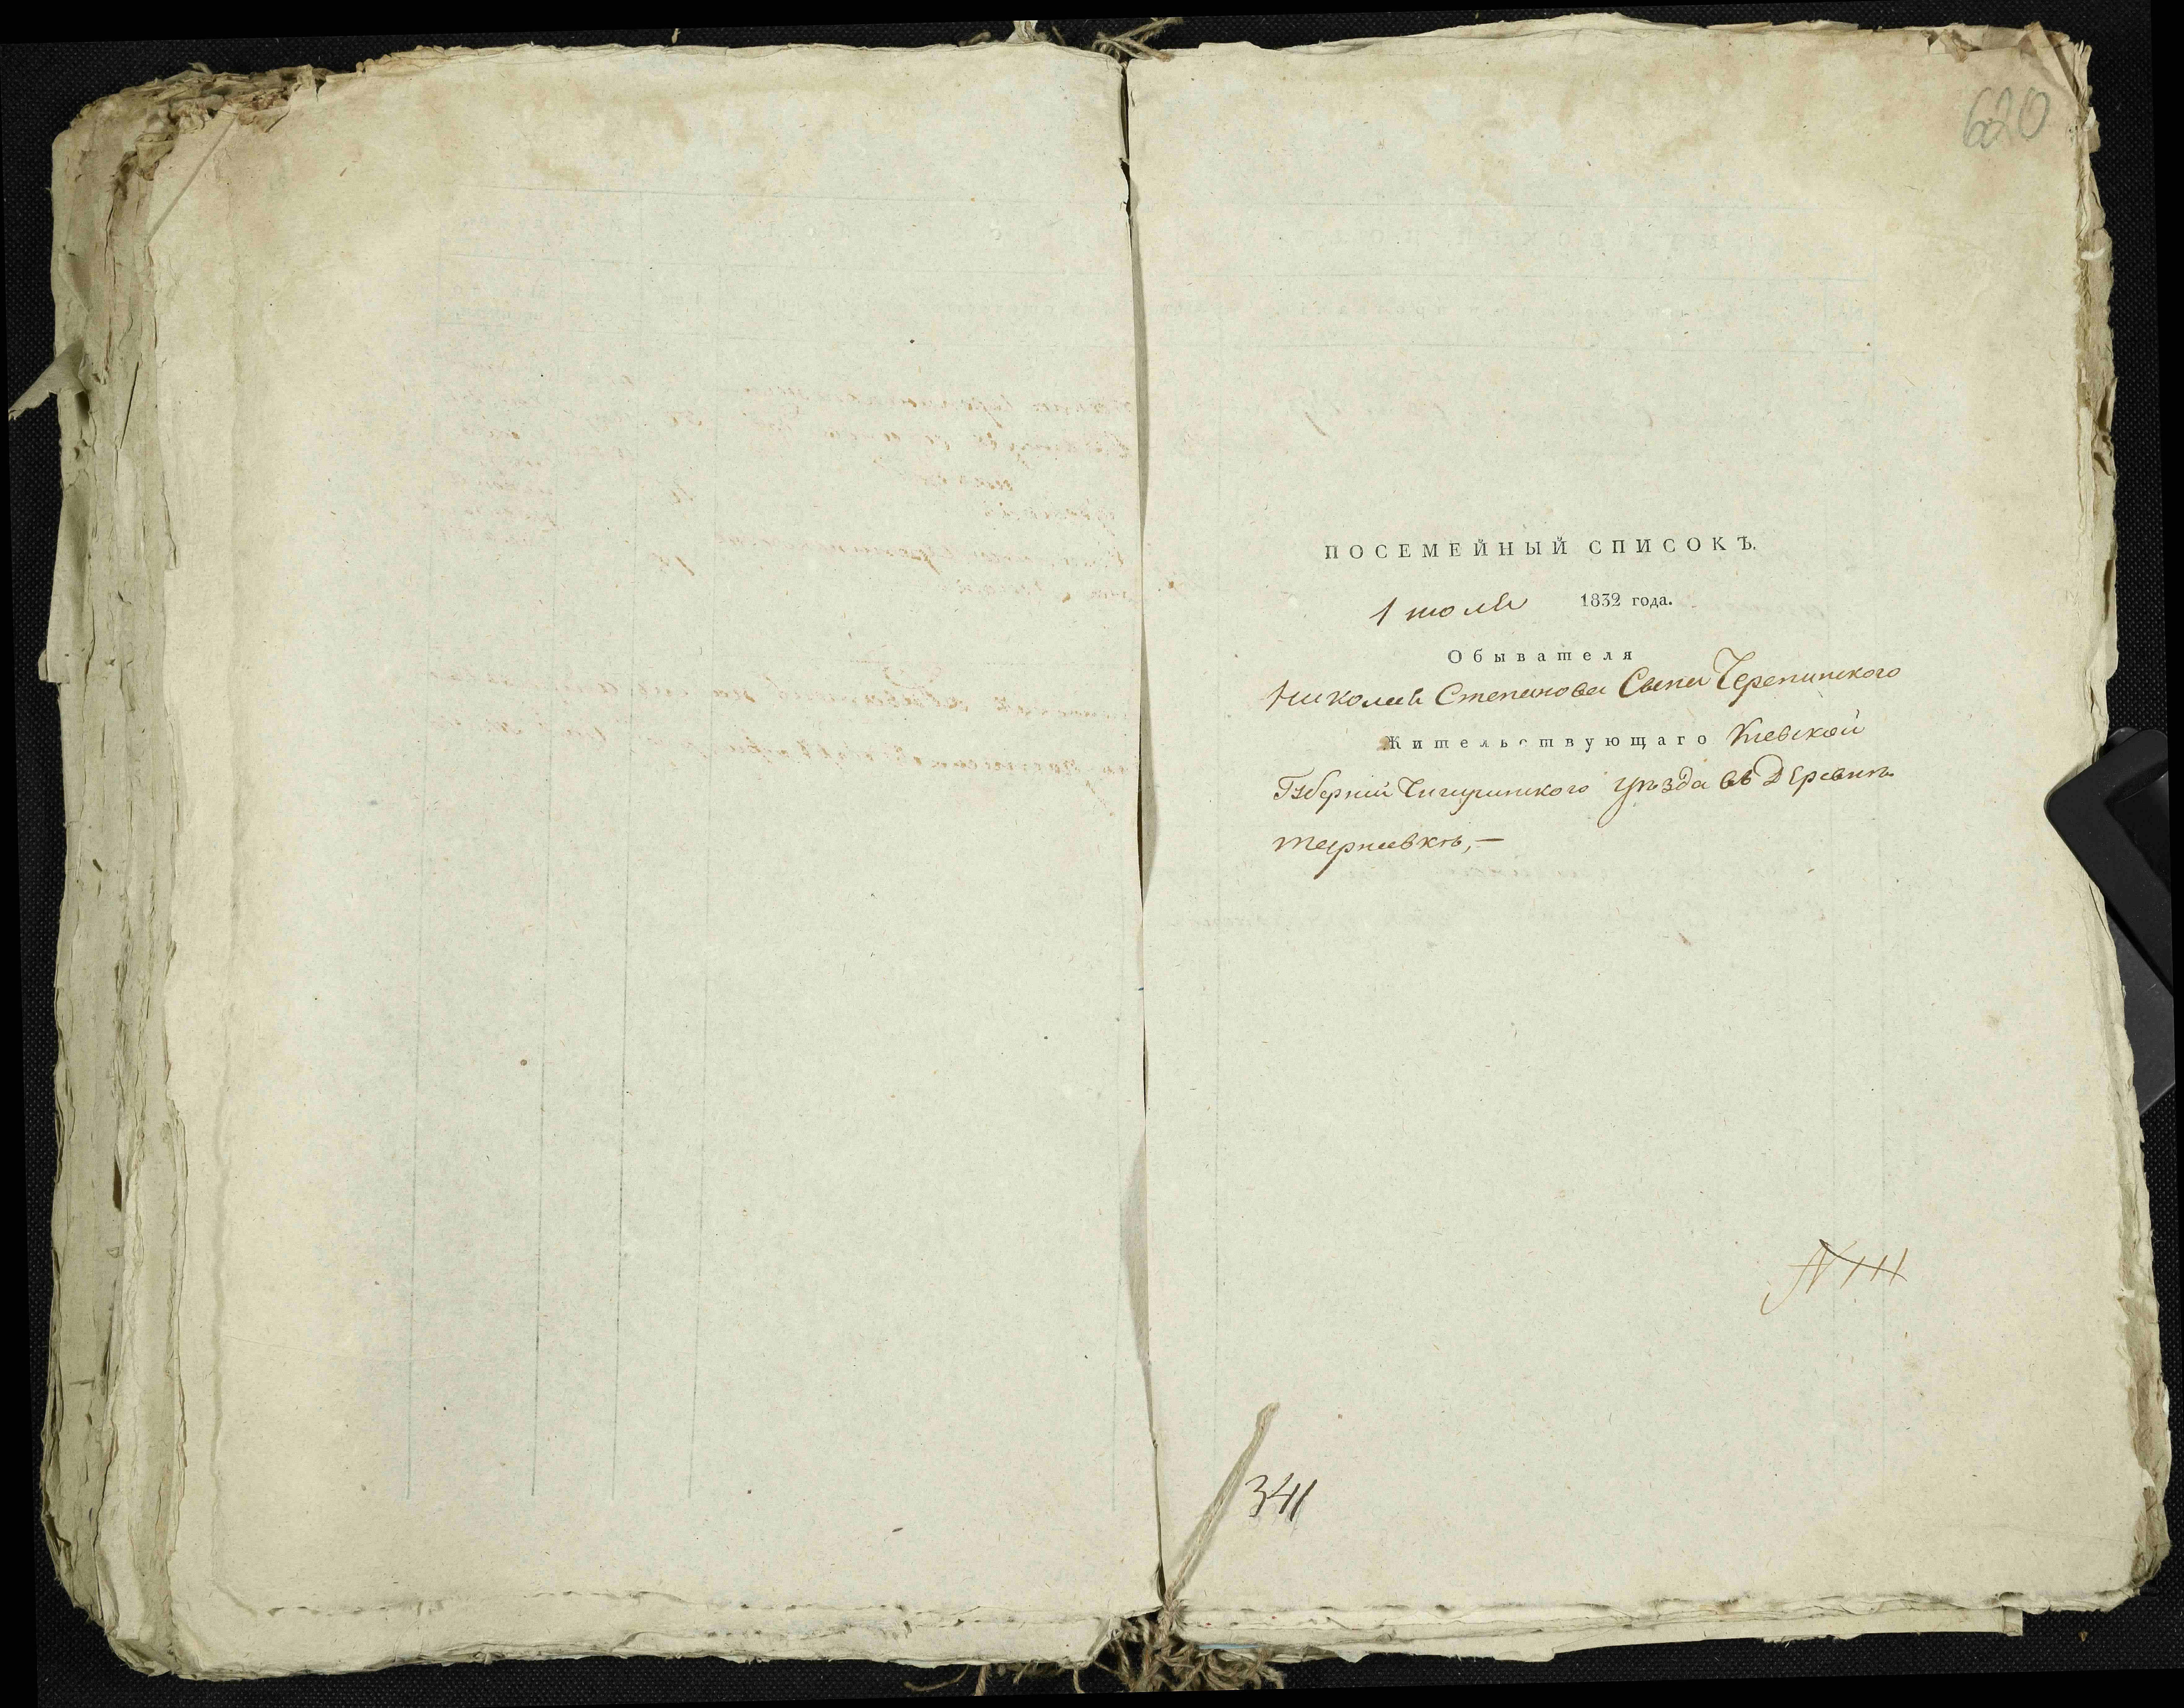 620
ПОСЕМЕЙНЫЙ СПИСОКЪ.
1 июля 1832 года.
Обывателя
Николая Степанова Сына Черепинского
Жительствующаго Киевской
Губернии Чигиринского уѣзда въ Деревнѣ
терновкѣ,—
N 111
341